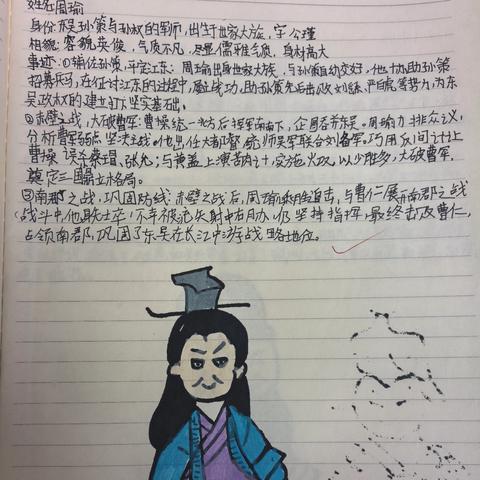 姓名:周瑜
身份:根孙策与孙权的军师,出生于世家大族,字公瑾
相貌:容貌英俊,气质不凡,尽显儒雅气质,身材高大
事迹:①辅佐孙策,平定江东:周瑜出身世家大族,与孙策自幼交好,他协助孙策
招募兵马,在征讨江东的过程中,屡立战功,助孙策先后击败刘繇、严白虎等势力,为东
吴政权的建立打下坚实基础。
②赤壁之战,大破曹军:曹操统一北方后挥军南下,企图吞并东吴。周瑜力排众议,
分析曹军弱点,坚决主战。他出任大都督,统师吴军联合刘备军,巧用反间计让
曹操误杀蔡瑁、张允;与黄盖上演苦肉计,实施火攻,以少胜多,大破曹军,
奠定三国鼎立格局。
③南郡之战,巩固防线:赤壁之战后,周瑜乘胜追击,与曹仁展开南郡之战
战斗中他身先士卒,不幸被流矢射中右肋,仍坚持指挥,最终击败曹仁,
占领南郡,巩固了东吴在长江中游战略地位。